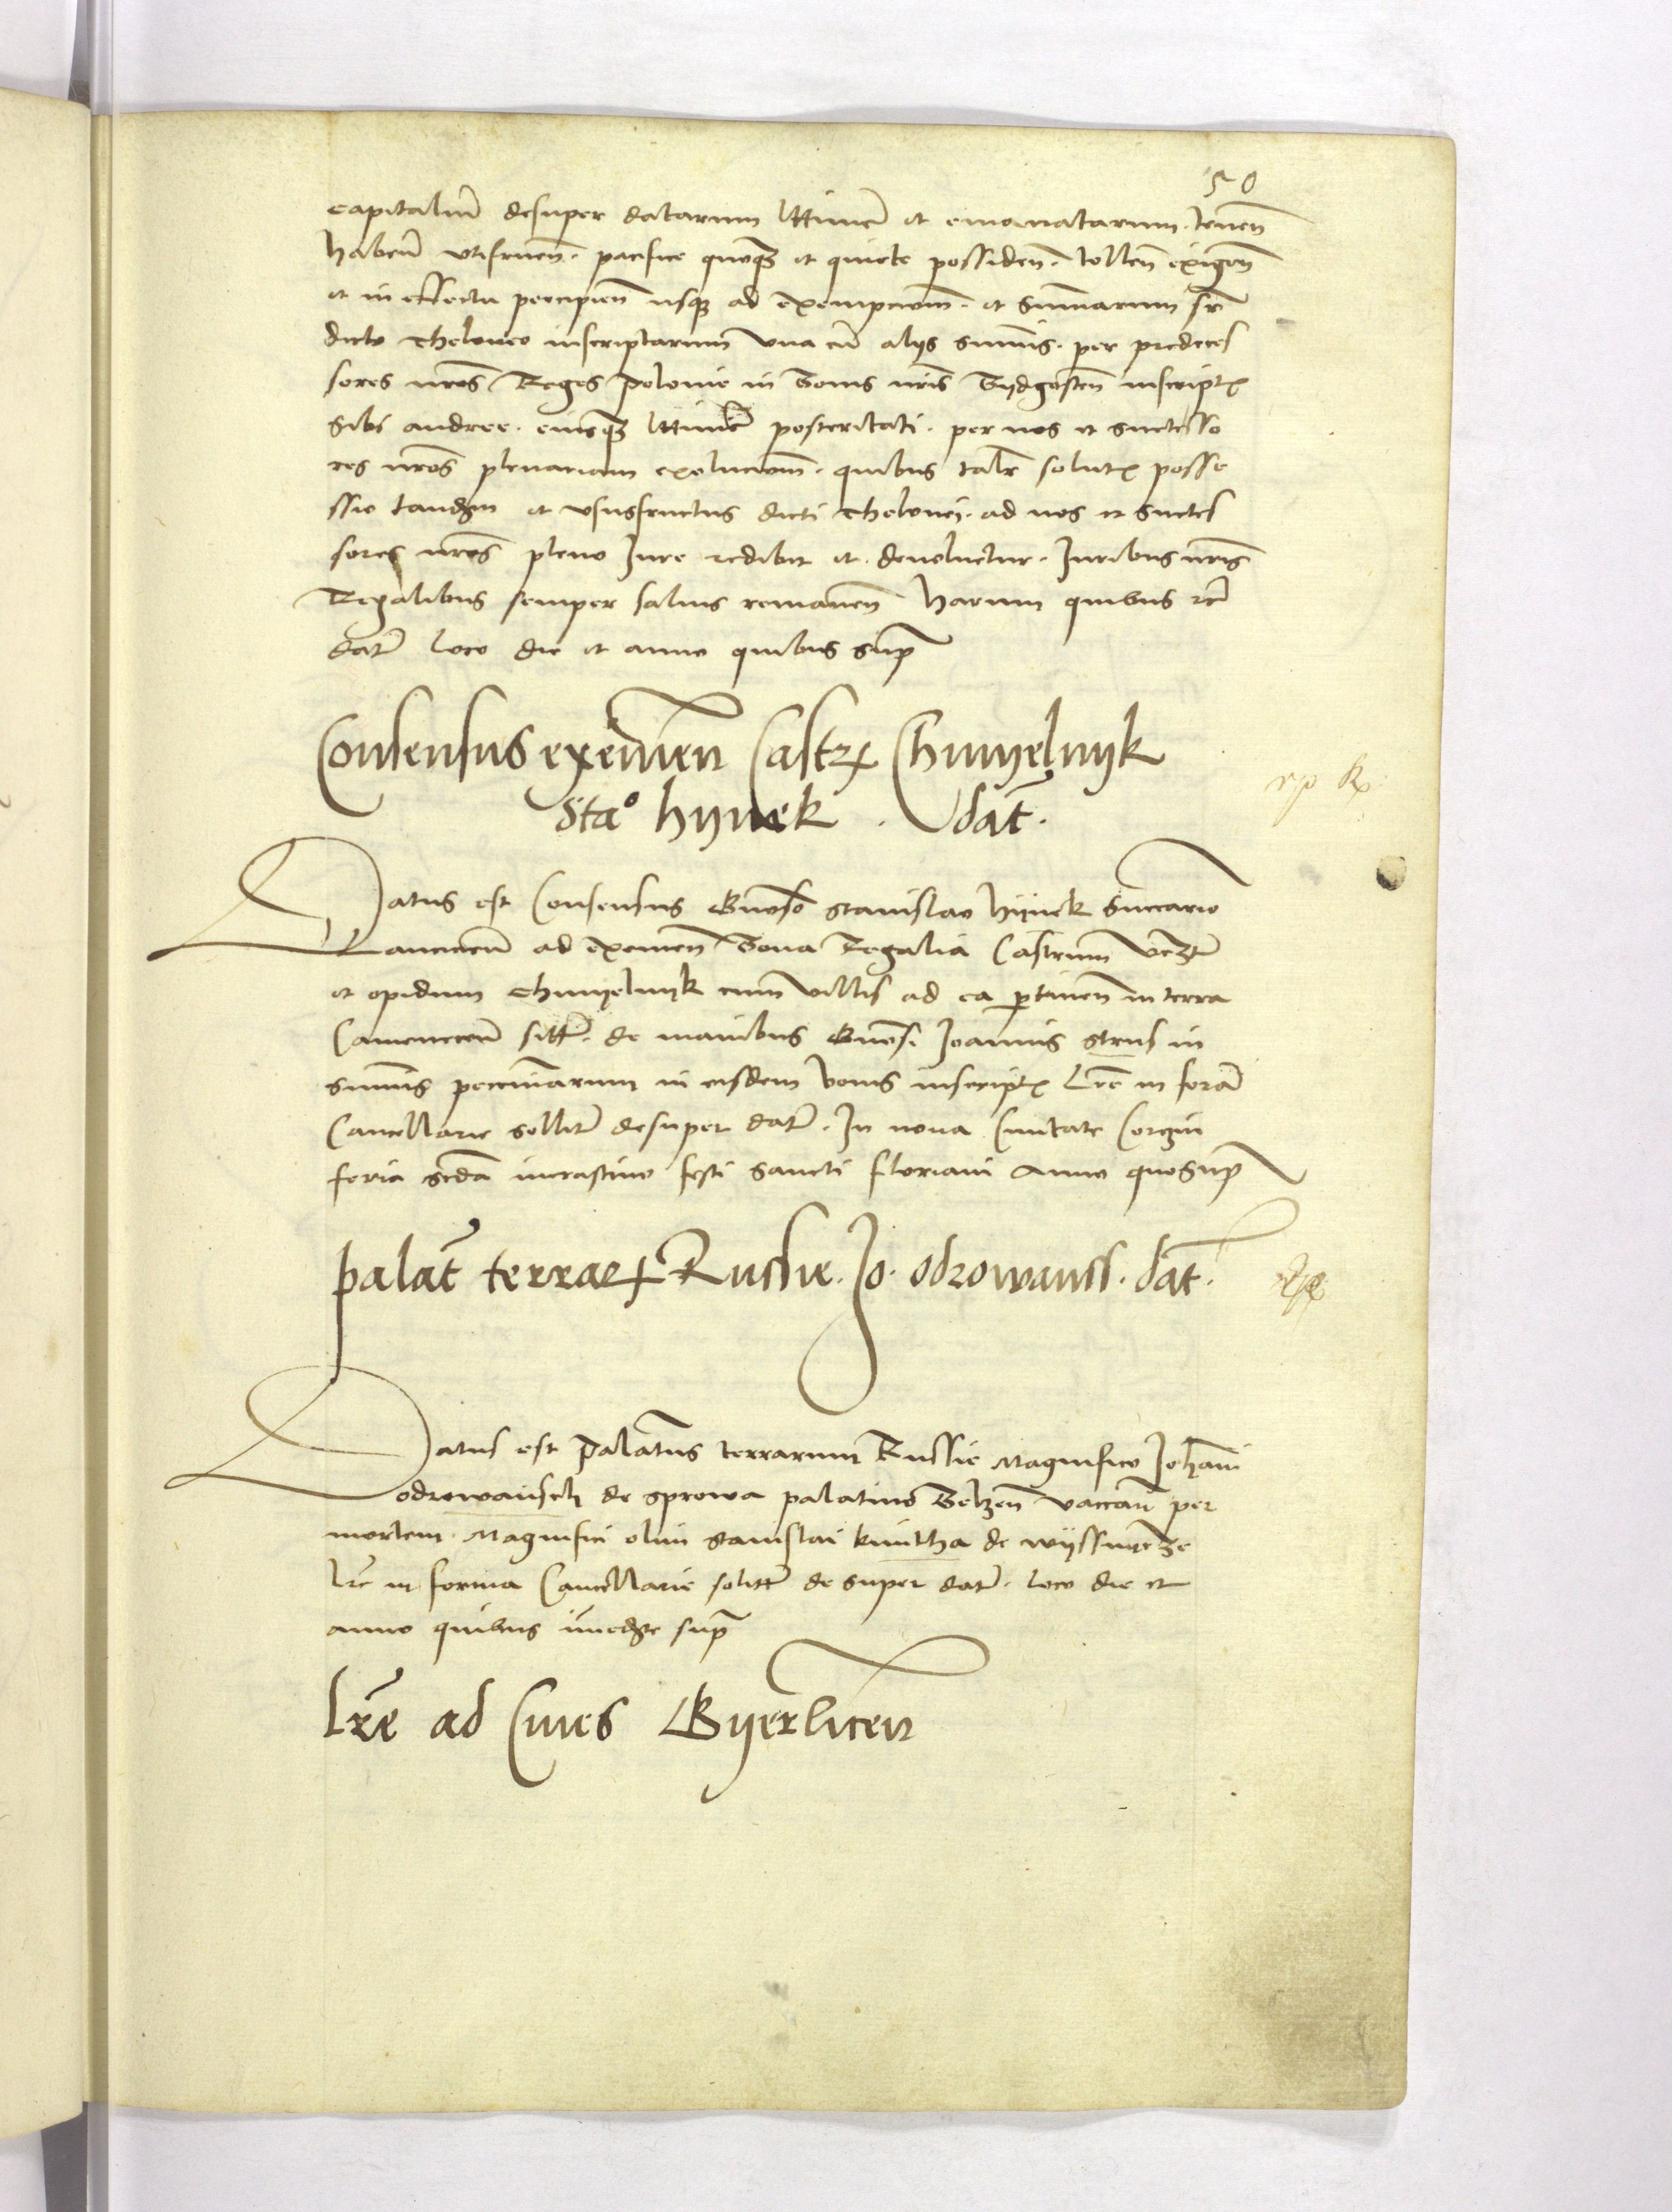 50
capitalium desuper datarum lttimor et emanatarum. tenen
haben utifruen. pacifice quoq et quiete possiden. tollen exigen
et in effectu percipien usq ad exempcionem. et summarum sr
dicto theloneo inscriptarum una cum alys summis. per predeces
sores nros Reges polonie in Bonis nris Bydgosten inscript
sibi andree. eiusq posteritati. per nos et successo
res nros plenariam exolucionem. quibus talr solutis posse
ssio tandem et ususfructus dicti thelonei. ad nos et succes
sores nros pleno Jure redibit et devoluetur. Juribus nris
Regalibus semper saluis remanen harum quibus etc
datum loco die et anno quibus supra
Consensus exemen Castri Chmyelnyk
Stao hynek. dat.
Datus est Consensus Gnoso stanislao hynek Succamerario
ad exemen Bona Regalia Castrum videlicet
et opidum Chmyelnyk cum villis ad ea ptinen in terra
Camenecen sitt. de manibus Gnosi Joannis strus in
summis pecuniarum in eisdem bonis inscript Lre in forma
Cancellarie sollite desuper dat. In nova Civitate Corczin
feria scda incrastino festi sancti floriani Anno quo supra
palat terrar Russie. Jo. odrowanss. dat.
Datus est palatinatus terrarum Russie Magnifico Johanni
odrowansch de sprowa palatino Belzen vaccan per
mortem. Magnifici olim stanislai kmitha de wyssnycze
Lre in forma Cancellarie solite de super dat. loco die et
anno quibus imediate supra
Lre ad Cives Gyerlicen